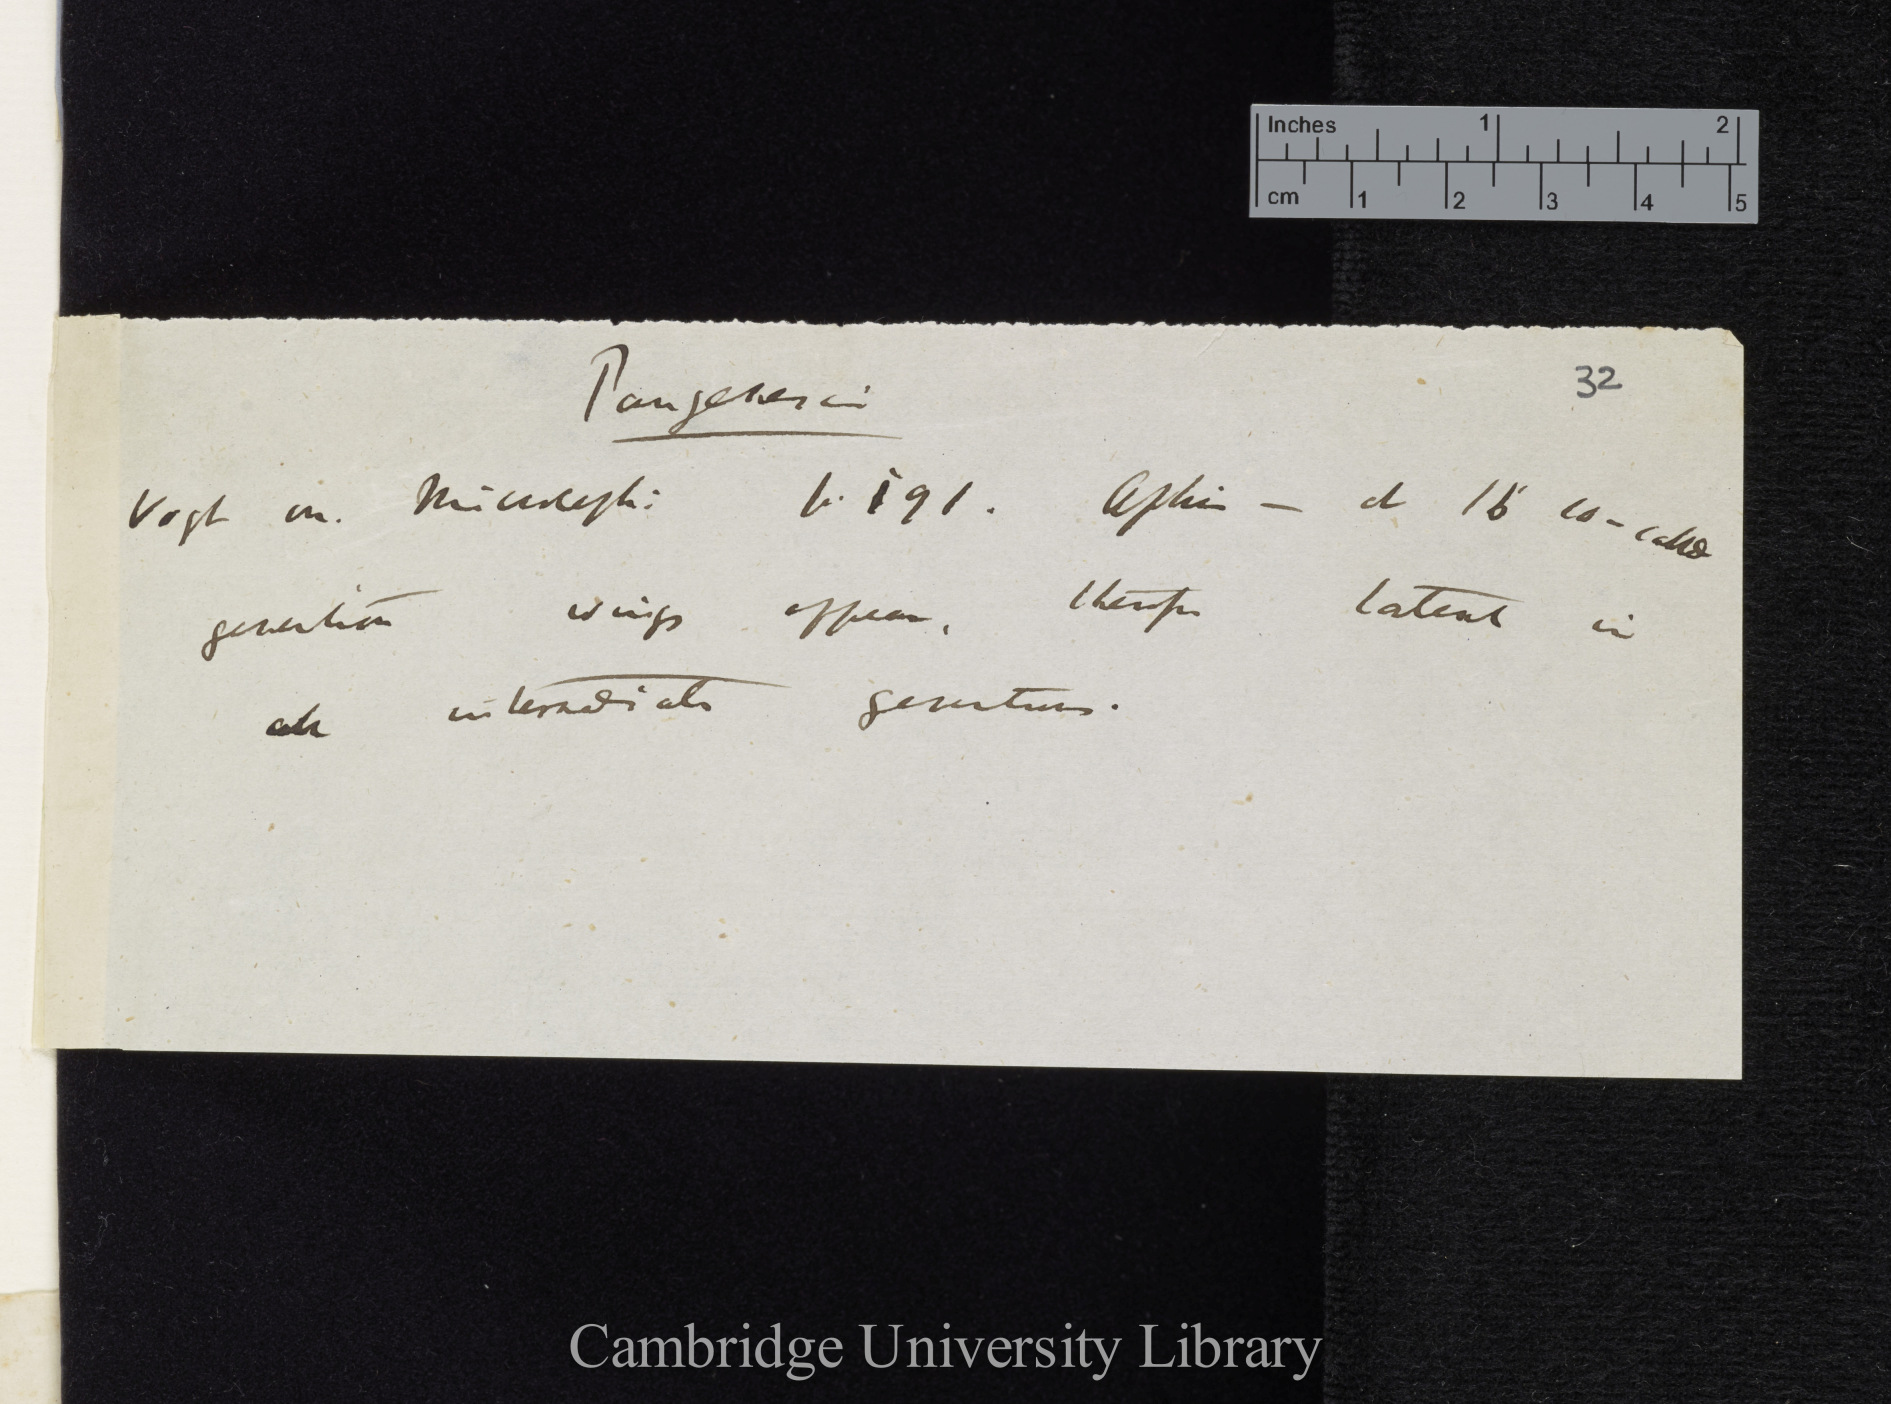 Inches 1 2
cm 1 2 3 4 5
32
Pangenesis
Vogt on. Microceph: p. 191. Aphis — at 16 so-called
generation wings appear, therefore latent in
all intermediate generations.
Cambridge University Library